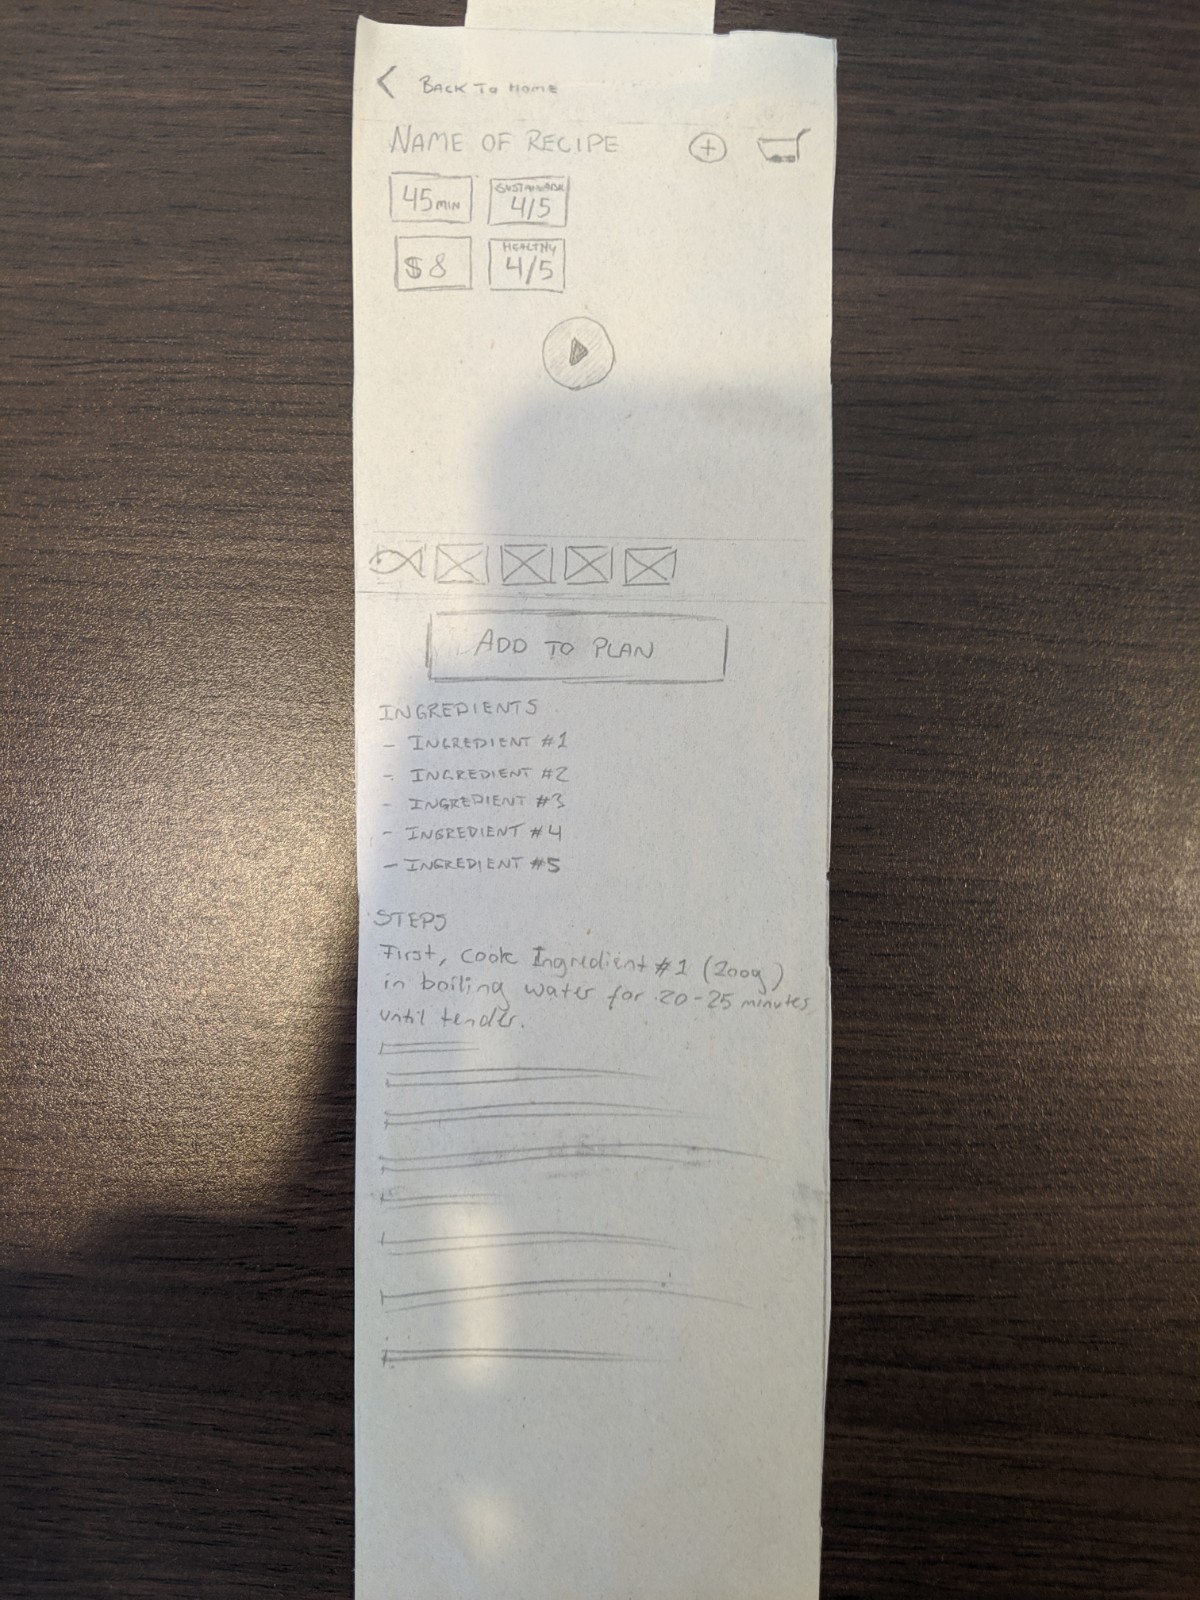 < BACK TO HOME
NAME OF RECIPE +
45 MIN
SUSTAINABLE
4/5
$8
HEALTHY
4/5
ADD TO PLAN
INGREDIENTS
- INGREDIENT #1
- INGREDIENT #2
- INGREDIENT #3
- INGREDIENT #4
- INGREDIENT #5
STEPS
First, cook Ingredient #1 (200g)
in boiling water for 20-25 minutes
until tender.